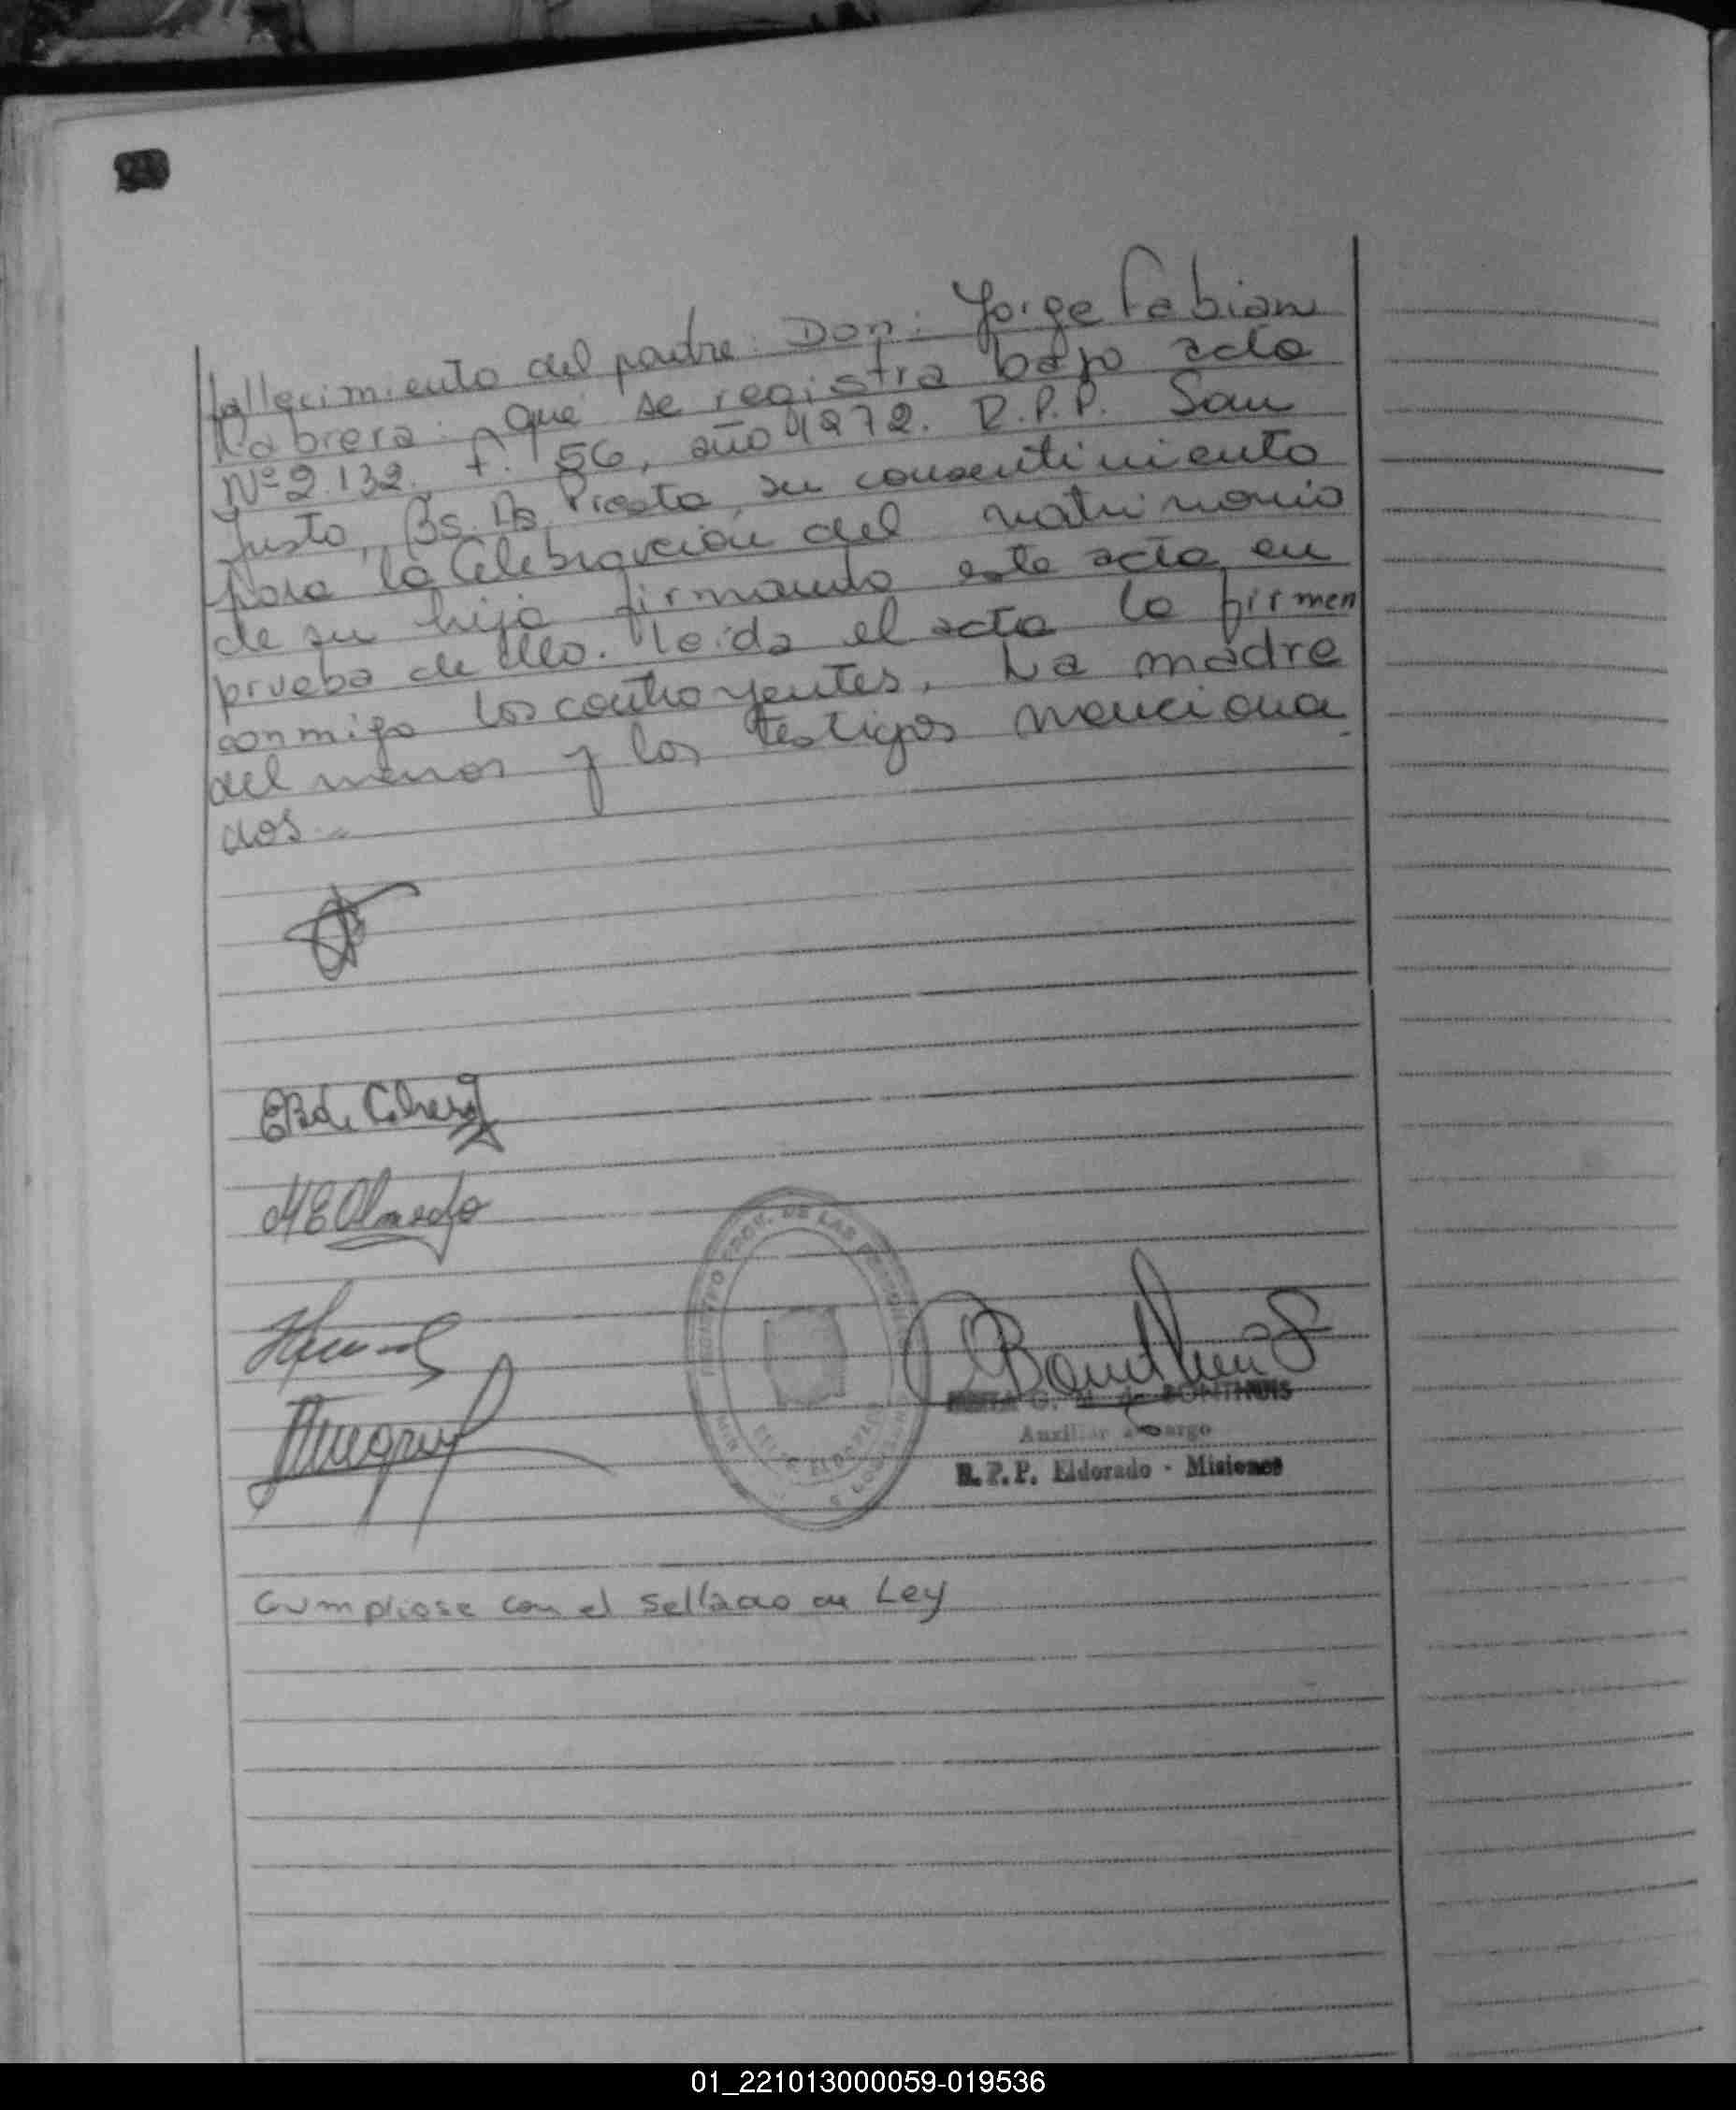 fallecimiento del padre: Don: Jorge Fabian
Cabrera. que se registra bajo acta
Nº 2.132. f. 56, año 1972. R.P.P. San
Justo, Bs. As. Presta, su consentimiento
para la Celebración del matrimonio
de su hijo firmando esta acta en
prueba de ello. leída el acta la firmen
conmigo los contrayentes, La madre
del menor y los testigos menciona
dos.-
E B de Cabrera
M E Olmedo
REGISTRO PROV. DE LAS
ELDORADO
G. M. de BONTHUIS
Auxiliar a cargo
R.P.P. Eldorado - Misiones
Cumpliose con el sellado de Ley
01_221013000059-019536